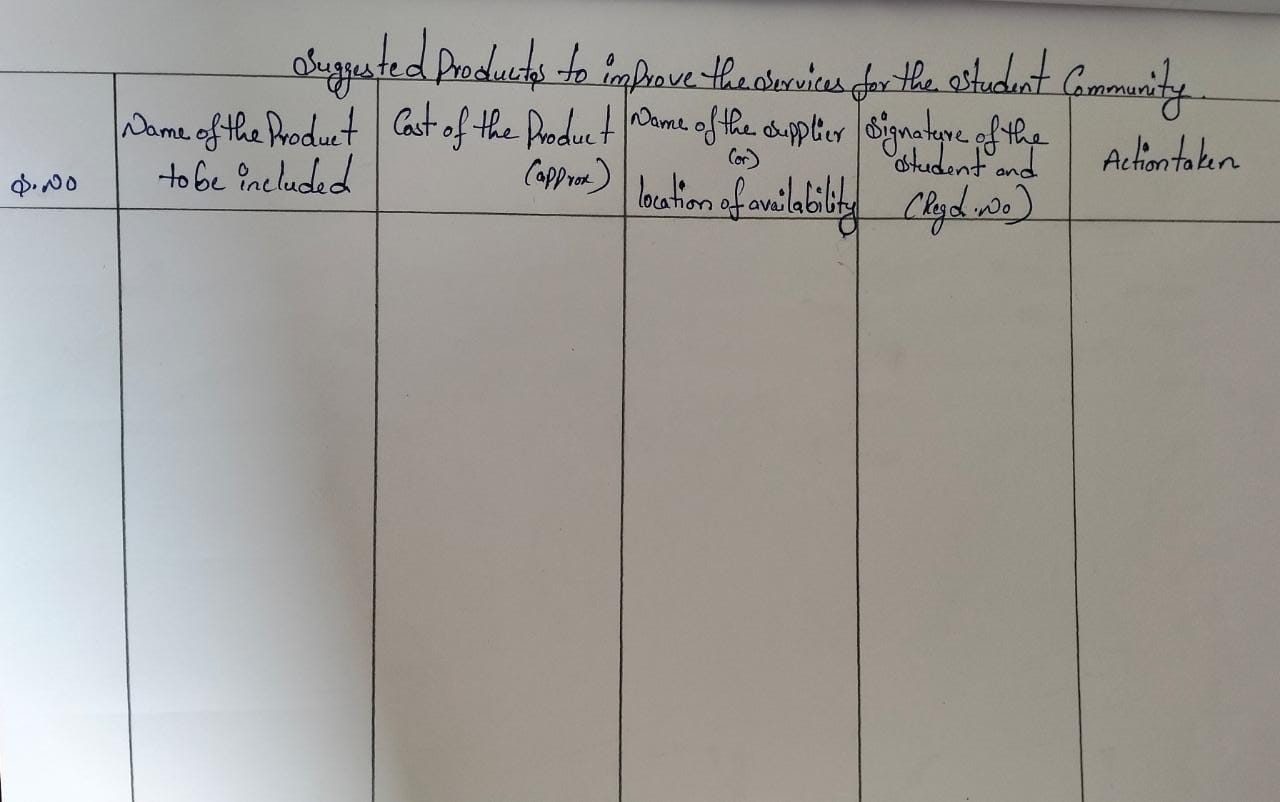 Suggested Products to improve the services for the student Community.
S.No
Name of the Product
to be included
Cost of the Product
(approx)
Name of the supplier
(or)
location of availability
Signature of the
student and
(Regd.No)
Action taken